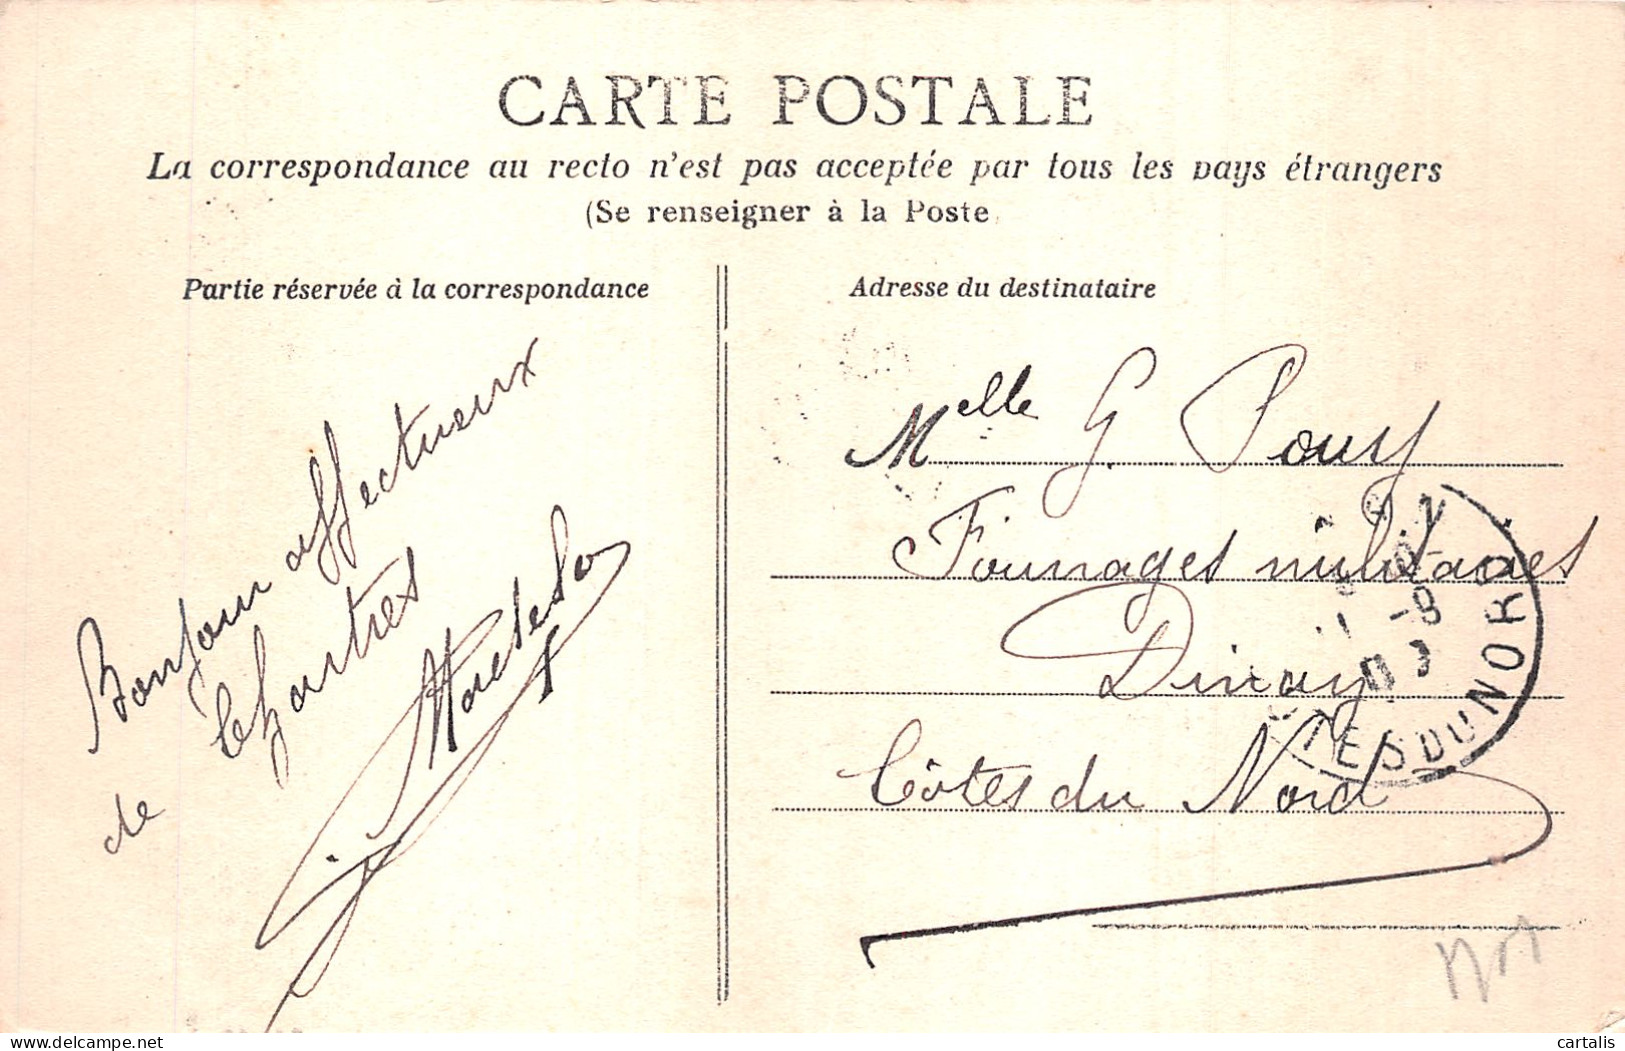 CARTE POSTALE
La correspondance au recto n'est pas acceptée par tous les pays étrangers
(Se renseigner à la Poste
Partie réservée à la correspondance
Bonjour affectueux
de Chartres
Adresse du destinataire
Melle G. Pouy
Fourrages militaires
Dinan
Côtes du Nord
TES DU NORD
cartalis
delcampe.net